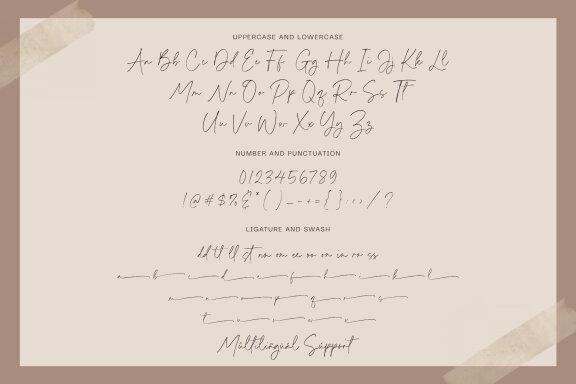 UPPERCASE AND LOWERCASE
Aa Bb Cc Dd Ee Ff Gg Hh Ii Jj Kk Ll
Mm Nn Oo Pp Qq Rr Ss Tt
Uu Vv Ww Xx Yy Zz
NUMBER AND PUNCTUATION
0123456789
!@#$%&*()_-+={}:;<>/?
LIGATURE AND SWASH
dd tt ll st
a b c d e f h i k l
m n o p q r s
t u v w x
Multilingual Support